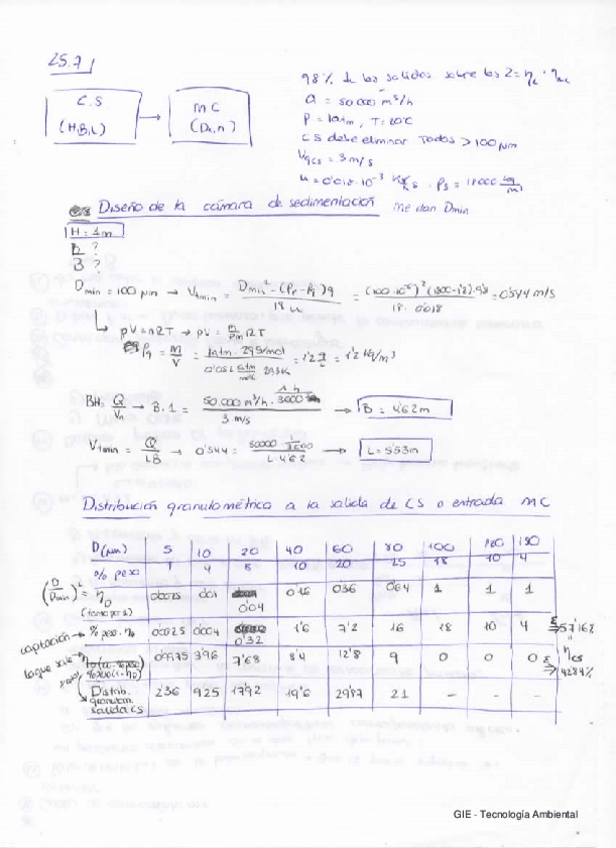 25.7
C.S
(H,B,L)
MC
(Dc,n)
98% de los solidos sobre los 2 = ηc · ηmc
Q = 50000 m³/h
P = 1 atm, T = 20ºC
CS debe eliminar todos > 100 μm
Vgcs = 3 m/s
Diseño de la cámara de sedimentación
me dan Dmin
H = 1m
L?
B?
Dmin = 100 μm → Vtmin = Dmin² · (ρs - ρg)g / 18 μ = 0'544 m/s
ρV = nRT → ρV = m/Pm RT
ρg = m/V = 1 atm · 29 g/mol / 0'082 atm l/mol K 293K = 1'2 g/l = 1'2 kg/m³
BH = Q/Vh → B · 1 = 50.000 m³/h · 1 h/3600 / 3 m/s → B = 4'62 m
Vtmin = Q/LB → 0'544 = 50000 1/3600 / L · 4'62 → L = 5'53m
Distribución granulométrica a la salida de CS o entrada MC
D(μm) 5 10 20 40 60 80 100 180
% peso 1 4 8 10 20 25 18 10 4
(D/Dmin)² = ηD 0'0025 0'01 0'04 0'16 0'36 0'64 1 1 1
(tanto por 1)
captación → % peso · ηD 0'0025 0'004 0'32 1'6 7'2 16 18 10 4 Σ 57'162
lo que sale 0'9975 3'96 7'68 8'4 12'8 9 0 0 0 Σ 42'84%
ηcs
Distrib. granulom. salida CS 2'36 9'25 17'92 19'6 29'87 21 - - -
GIE - Tecnología Ambiental